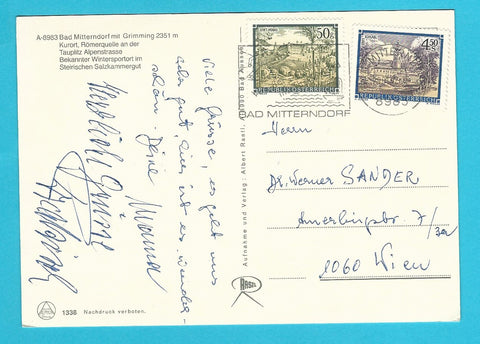 A-8983 Bad Mitterndorf mit Grimming 2351 m
Kurort, Römerquelle an der
Tauplitz Alpenstrasse
Bekannter Wintersportort im
Steirischen Salzkammergut
Viele Grüsse, es geht uns
sehr gut, hier ist es wunder-
schön. Deine Mama
Herzlich Grüsst
50g
REPUBLIK ÖSTERREICH
4.50
REPUBLIK ÖSTERREICH
BAD MITTERNDORF
8983
Herrn
Dr. Werner SANDER
Amerlingstr. 7/
1060 Wien
Aufnahme und Verlag: Albert Rastl, Bad Aussee
RASTL
1338 Nachdruck verboten.